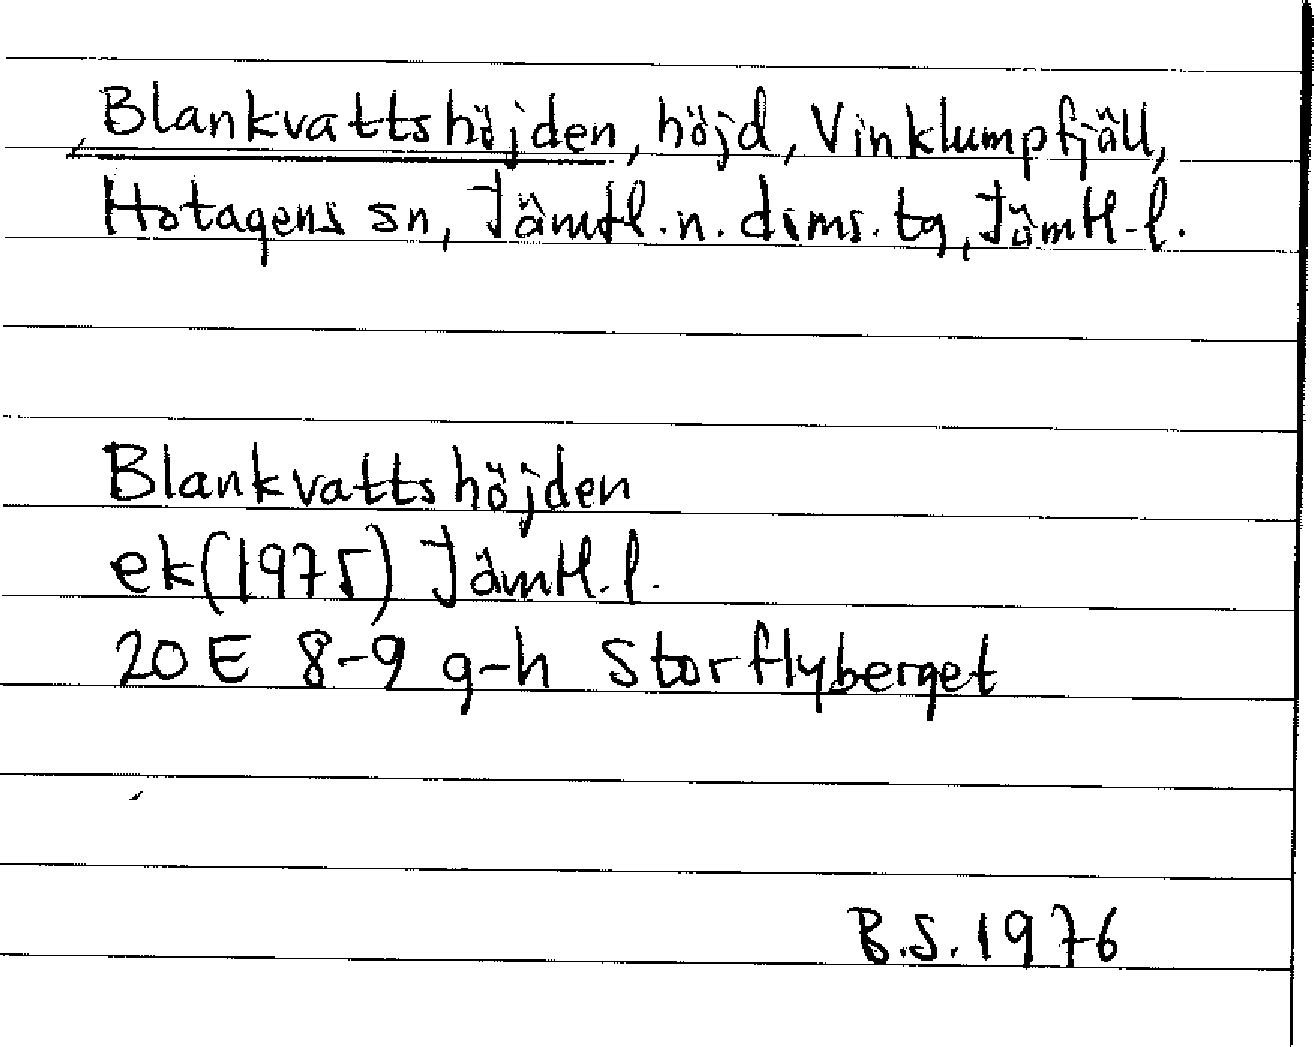 Blankvattshöjden, höjd, Vinklumpfjäll,
Hotagens sn, Jämtl. n. doms. tg, Jämtl. l.
Blankvattshöjden
ek (1975) Jämtl. l.
20 E 8-9 g-h Storflyberget
B.S. 1976